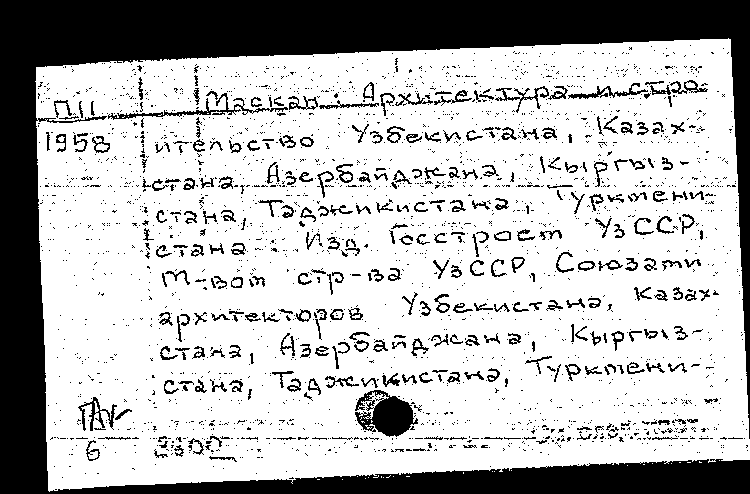 П11 Маскан: Архитектура и стро-
1958 ительство Узбекистана, Казах-
стана, Азербайджана, Кыргыз-
стана, Таджикистана, Туркмени-
стана. Изд. Госстроем УзССР,
М-вом стр-ва УзССР, Союзами
архитекторов Узбекистана, Казах-
стана, Азербайджана, Кыргыз-
стана, Таджикистана, Туркмени-
6